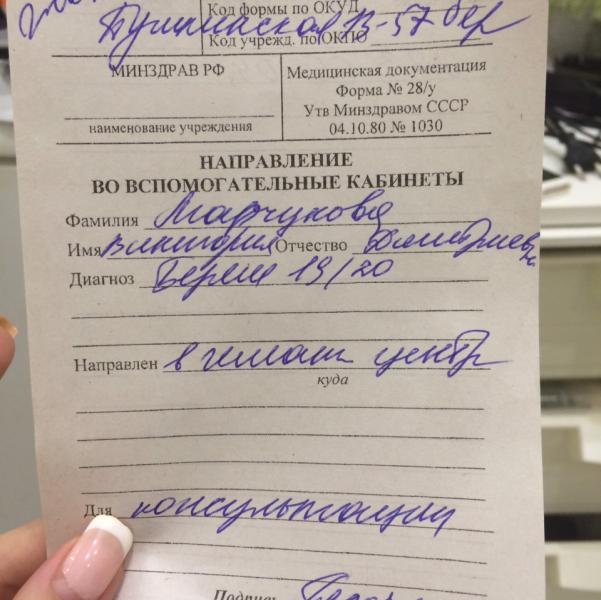 Код формы по ОКУД
Пушкинская 13-57
Код учрежд. по ОКПО
МИНЗДРАВ РФ
наименование учреждения
Медицинская документация
Форма № 28/у
Утв Минздравом СССР
04.10.80 № 1030
НАПРАВЛЕНИЕ
ВО ВСПОМОГАТЕЛЬНЫЕ КАБИНЕТЫ
Фамилия Марчукова
Имя Виктория Отчество Дмитриевна
Диагноз Берем 19/20
Направлен в гемат центр
куда
Для консультации
Подпись